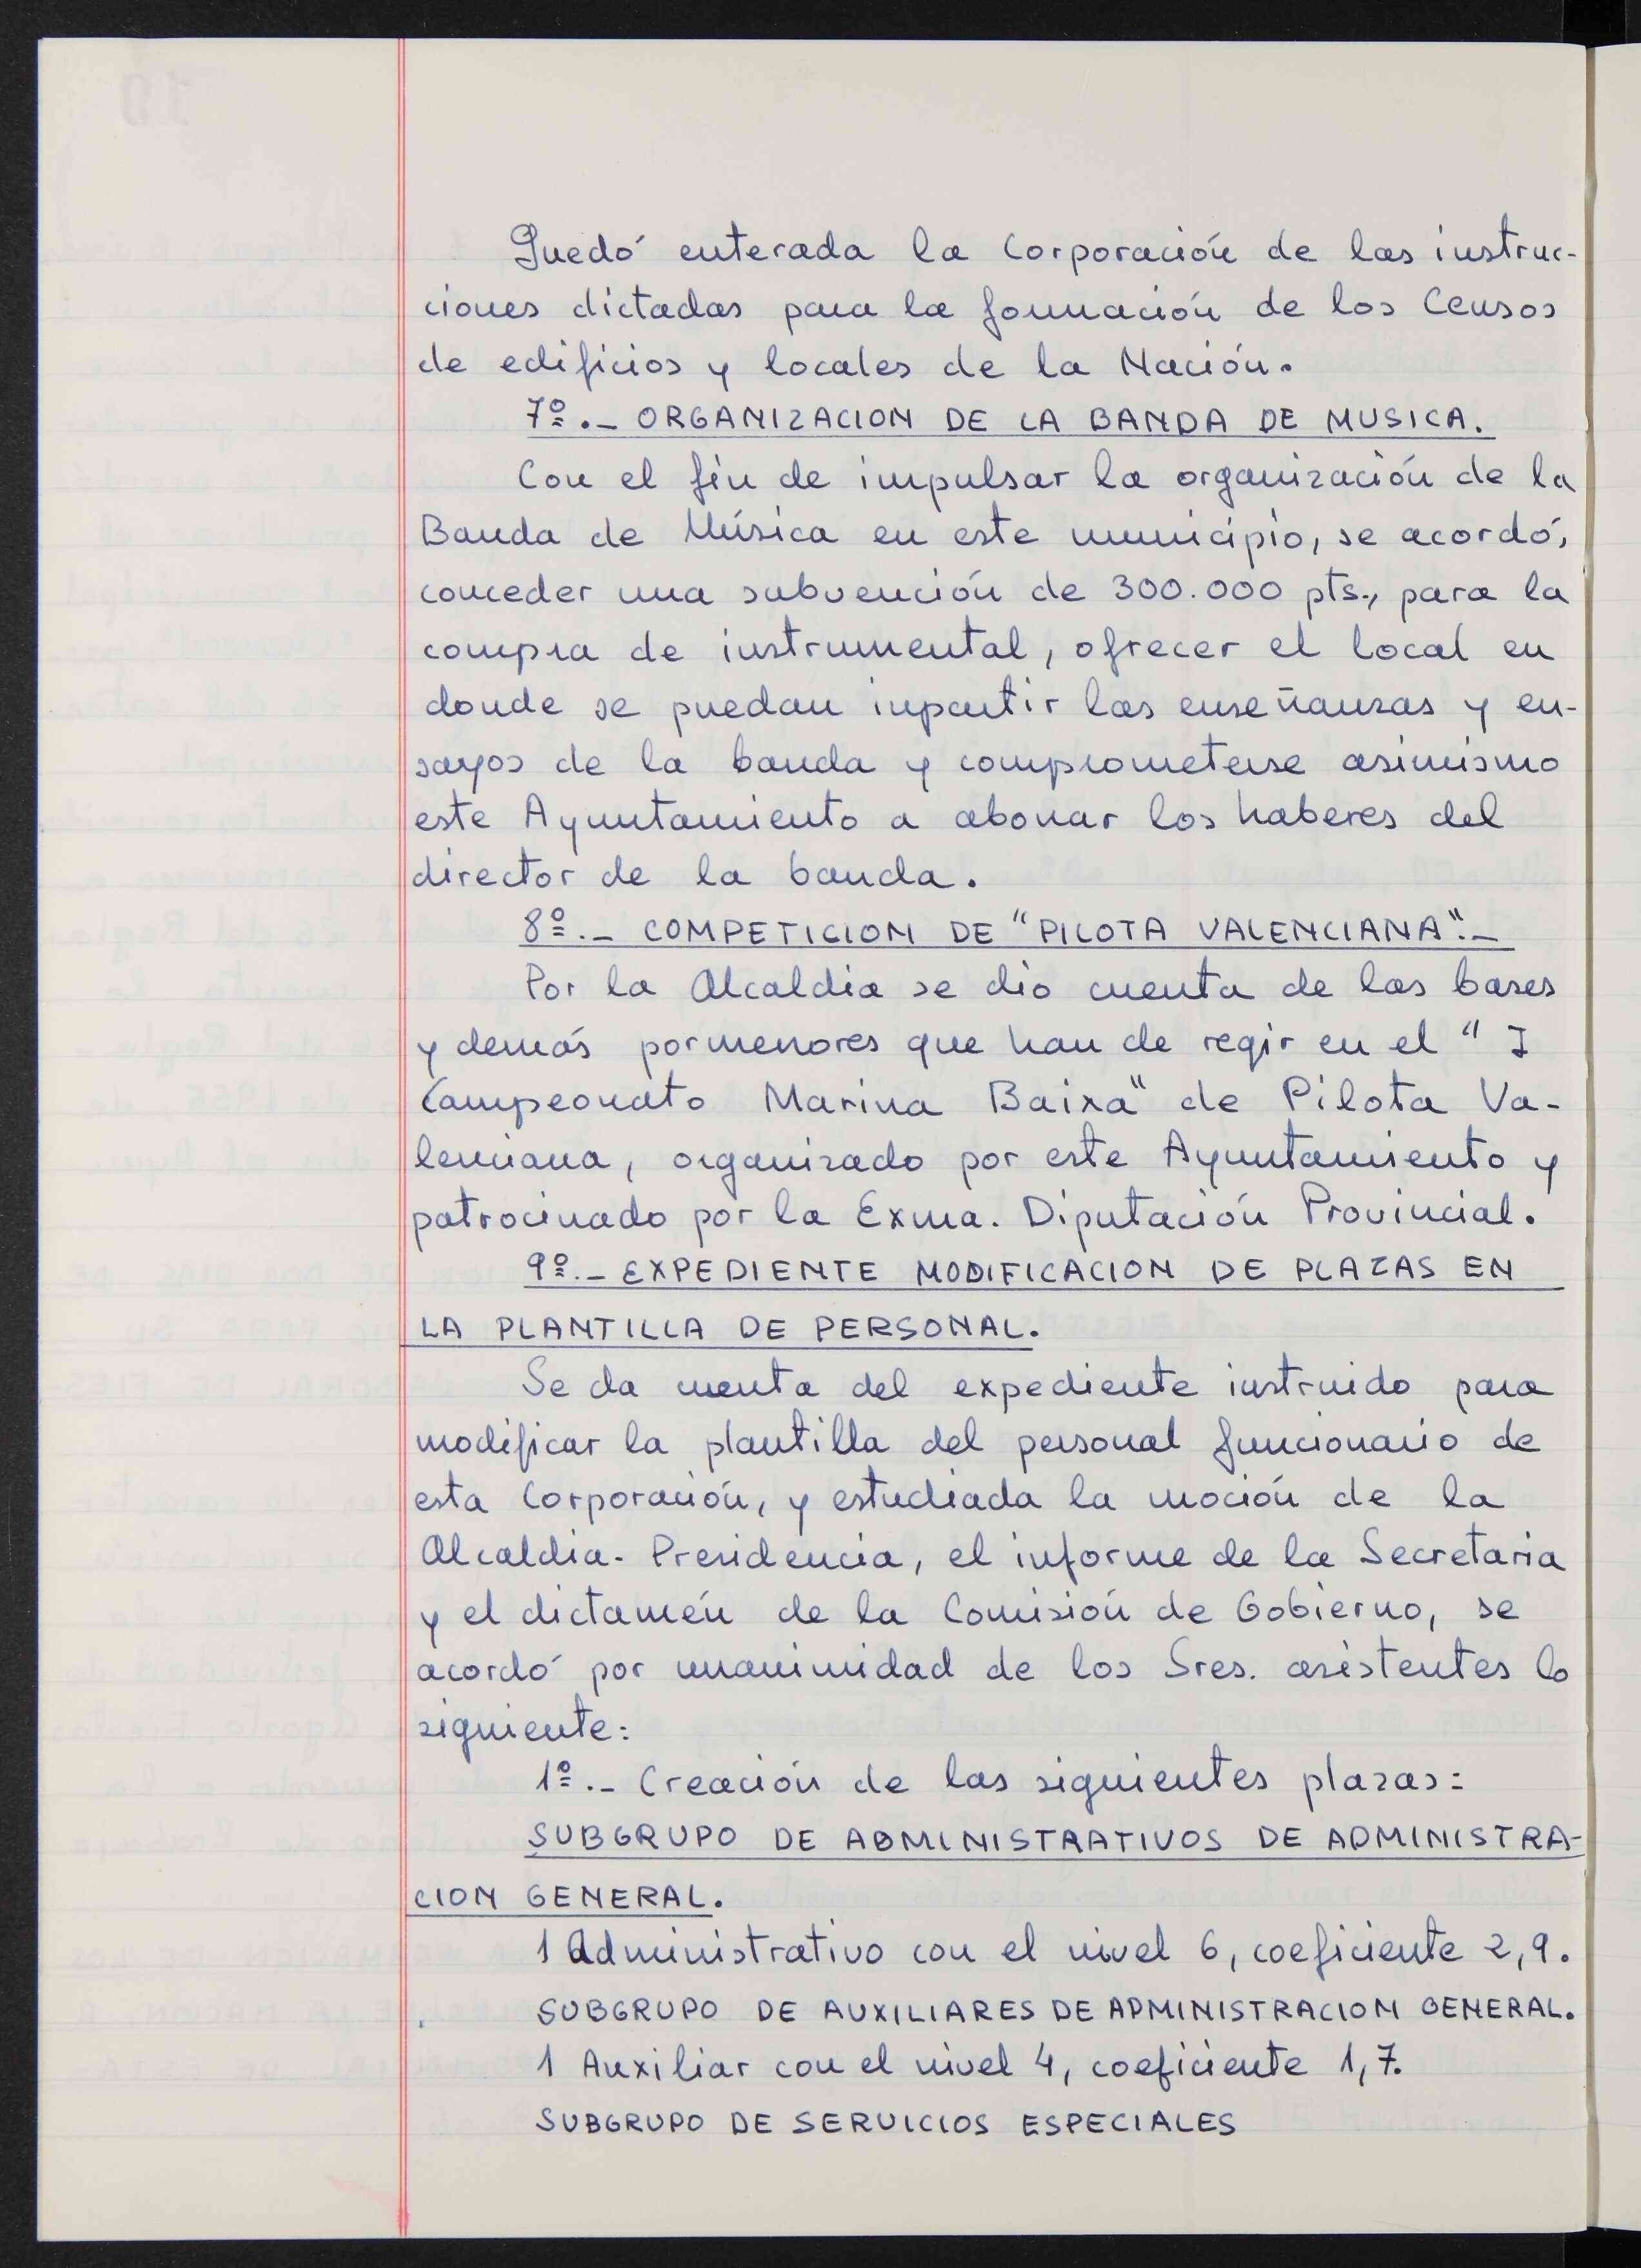 Quedó enterada la Corporación de las instruc-
ciones dictadas para la formación de los Censos
de edificios y locales de la Nación.
7º.- ORGANIZACION DE LA BANDA DE MUSICA.
Con el fin de impulsar la organización de la
Banda de Música en este municipio, se acordó,
conceder una subvención de 300.000 pts., para la
compra de instrumental, ofrecer el local en
donde se puedan inpartir las enseñanzas y en-
sayos de la banda y comprometerse asimismo
este Ayuntamiento a abonar los haberes del
director de la banda.
8º.- COMPETICION DE "PILOTA VALENCIANA".-
Por la Alcaldia se dio cuenta de las bases
y demás pormenores que han de regir en el "I
Campeonato Marina Baixa" de Pilota Va-
lenciana, organizado por este Ayuntamiento y
patrocinado por la Exma. Diputación Provincial.
9º.- EXPEDIENTE MODIFICACION DE PLAZAS EN
LA PLANTILLA DE PERSONAL.
Se da cuenta del expediente instruido para
modificar la plantilla del personal funcionario de
esta Corporación, y estudiada la moción de la
Alcaldia-Presidencia, el informe de la Secretaria
y el dictamén de la Comisión de Gobierno, se
acordó por unanimidad de los Sres. asistentes lo
siguiente:
1º.- Creación de las siguientes plazas:
SUBGRUPO DE ADMINISTRATIVOS DE ADMINISTRA-
CION GENERAL.
1 Administrativo con el nivel 6, coeficiente 2,9.
SUBGRUPO DE AUXILIARES DE ADMINISTRACION GENERAL.
1 Auxiliar con el nivel 4, coeficiente 1,7.
SUBGRUPO DE SERVICIOS ESPECIALES